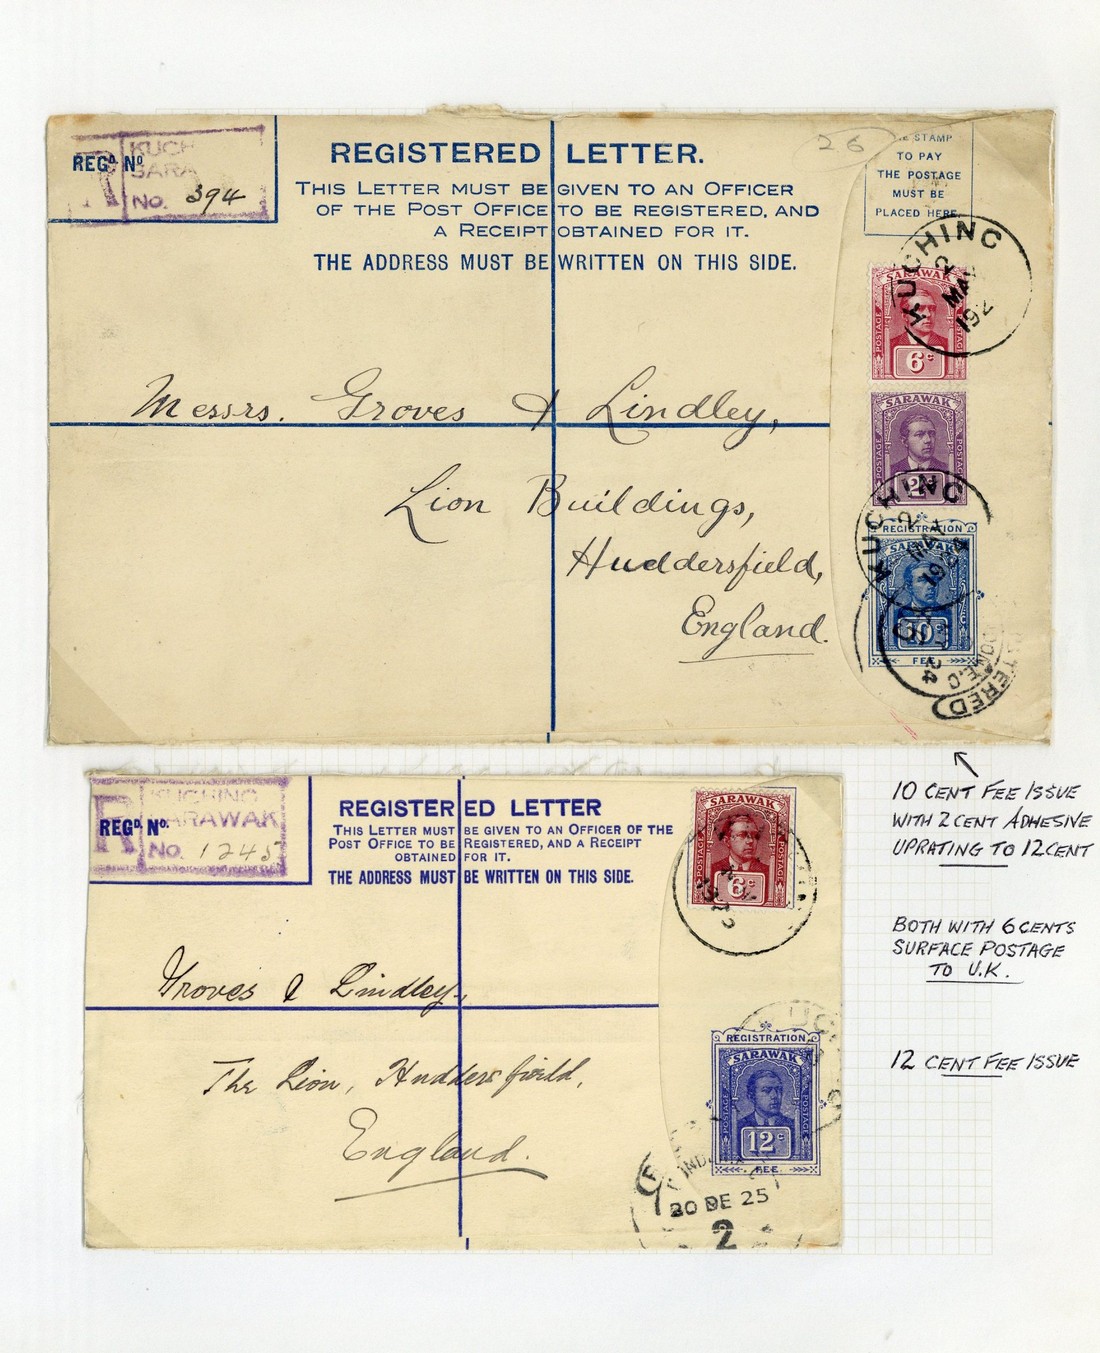 REGᴰ Nº
KUCH
SARA
R No. 394
REGISTERED LETTER.
THIS LETTER MUST BE GIVEN TO AN OFFICER
OF THE POST OFFICE TO BE REGISTERED, AND
A RECEIPT OBTAINED FOR IT.
THE ADDRESS MUST BE WRITTEN ON THIS SIDE.
26
E STAMP
TO PAY
THE POSTAGE
MUST BE
PLACED HERE.
KUCHING
2
MAY
192
SARAWAK
POSTAGE POSTAGE
6c
Messrs. Groves & Lindley,
Lion Buildings,
Huddersfield,
England.
SARAWAK
POSTAGE POSTAGE
2
KUCHING
2
MAY
1924
REGISTRATION
SARAWAK
10
FEE
24
STERED
10 CENT FEE ISSUE
WITH 2 CENT ADHESIVE
UPRATING TO 12 CENT
BOTH WITH 6 CENTS
SURFACE POSTAGE
TO U.K.
12 CENT FEE ISSUE
REGᴰ Nº.
R KUCHING
SARAWAK
No. 1245
REGISTERED LETTER
THIS LETTER MUST BE GIVEN TO AN OFFICER OF THE
POST OFFICE TO BE REGISTERED, AND A RECEIPT
OBTAINED FOR IT.
THE ADDRESS MUST BE WRITTEN ON THIS SIDE.
SARAWAK
POSTAGE POSTAGE
6c
Groves & Lindley,
The Lion, Huddersfield,
England.
REGISTRATION
SARAWAK
POSTAGE POSTAGE
12c
FEE
20 DE 25
2